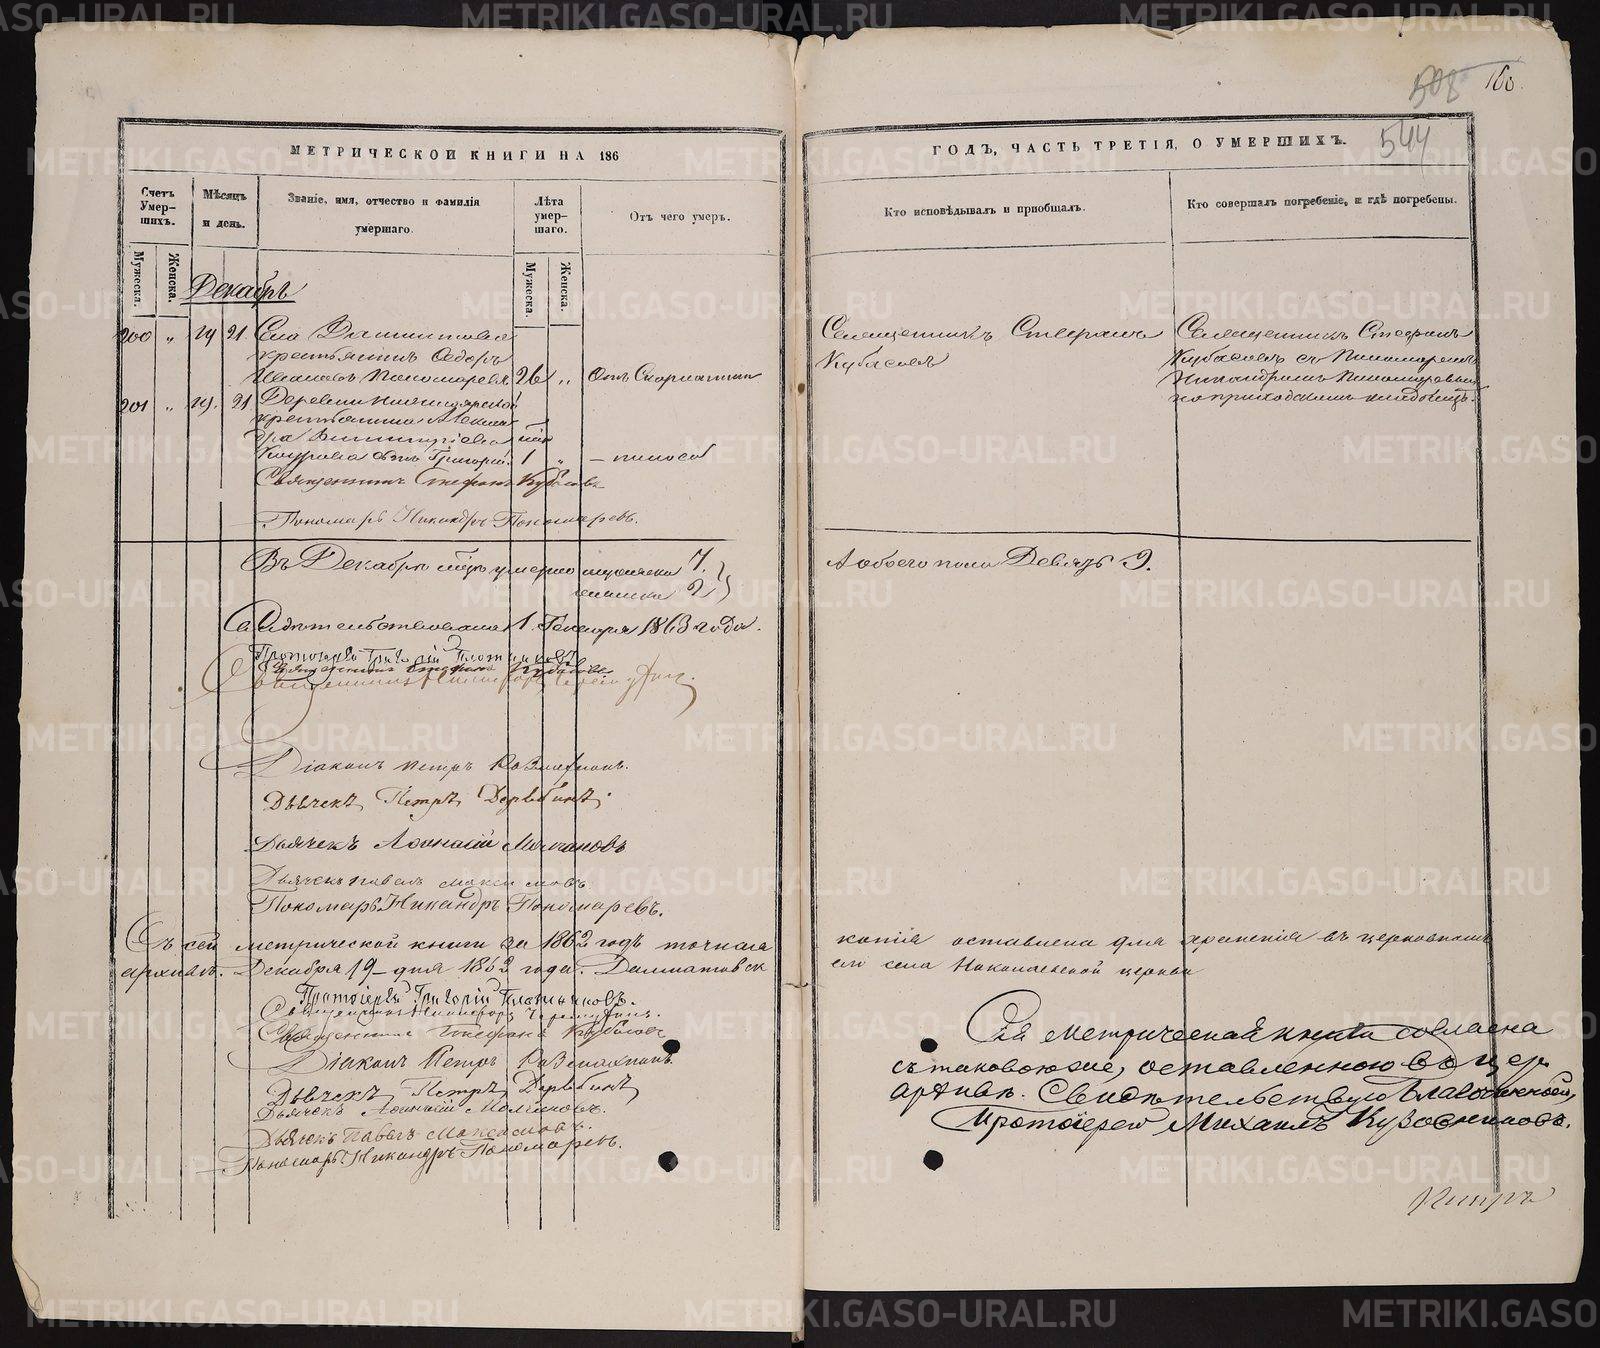 508 160.
544
МЕТРИЧЕСКОЙ КНИГИ НА 186
ГОДЪ, ЧАСТЬ ТРЕТІЯ, О УМЕРШИХЪ.
Счетъ Умер-шихъ.
Мѣсяцъ и день.
Званіе, имя, отчество и фамилія умершаго.
Лѣта умер-шаго.
Отъ чего умеръ.
Кто исповѣдывалъ и пріобщалъ.
Кто совершалъ погребеніе, и гдѣ погребены.
Мужеска. Женска.
Мужеска. Женска.
Декабрь
200 " 19 21 Села
крестьянинъ Ѳедоръ
Ивановъ Пономаревъ 26 " Отъ Скарлатины
Священникъ Стефанъ
Кубасовъ
Священникъ Стефанъ
Кубасовъ съ Пономаремъ
Никандромъ Пономаревымъ
на приходскомъ кладбищѣ.
201 " 19. 21 Деревни
крестьянина Алексан
дра Димитріева
сынъ Григорій. 1 " — поноса
Священникъ Стефанъ Кубасовъ
Пономарь Никандръ Пономаревъ.
Въ Декабрѣ мцѣ умерло мужеска 7.
женска 2
А обоего пола Девять 9.
Свидѣтельствовали 1 Генваря 1863 года.
Протоіерей Григорій Плотниковъ
Священникъ Стефанъ Кубасовъ
Священникъ Никифоръ
Діаконъ Петръ
Дьячекъ Петръ Дерябинъ.
Дьячекъ Аѳанасій Молчановъ
Дьячекъ Павелъ Максимовъ.
Пономарь Никандръ Пономаревъ.
Съ сей метрической книги за 1862 годъ точная копія оставлена для храненія въ церковномъ
архивѣ. Декабря 19 дня 1863 года. Далматовск
аго села Николаевской церкви
Протоіерей Григорій Плотниковъ.
Священникъ Никифоръ
Священникъ Стефанъ Кубасовъ
Діаконъ Петръ
Дьячекъ Петръ Дерябинъ
Дьячекъ Аѳанасій Молчановъ.
Дьячекъ Павелъ Максимовъ.
Пономарь Никандръ Пономаревъ.
Сія метрическая книга согласна
съ таковоюже, оставленною въ цер
архивѣ. Свидѣтельствую Благочинный,
Протоіерей Михаилъ Кузовниковъ.
METRIKI.GASO-URAL.RU